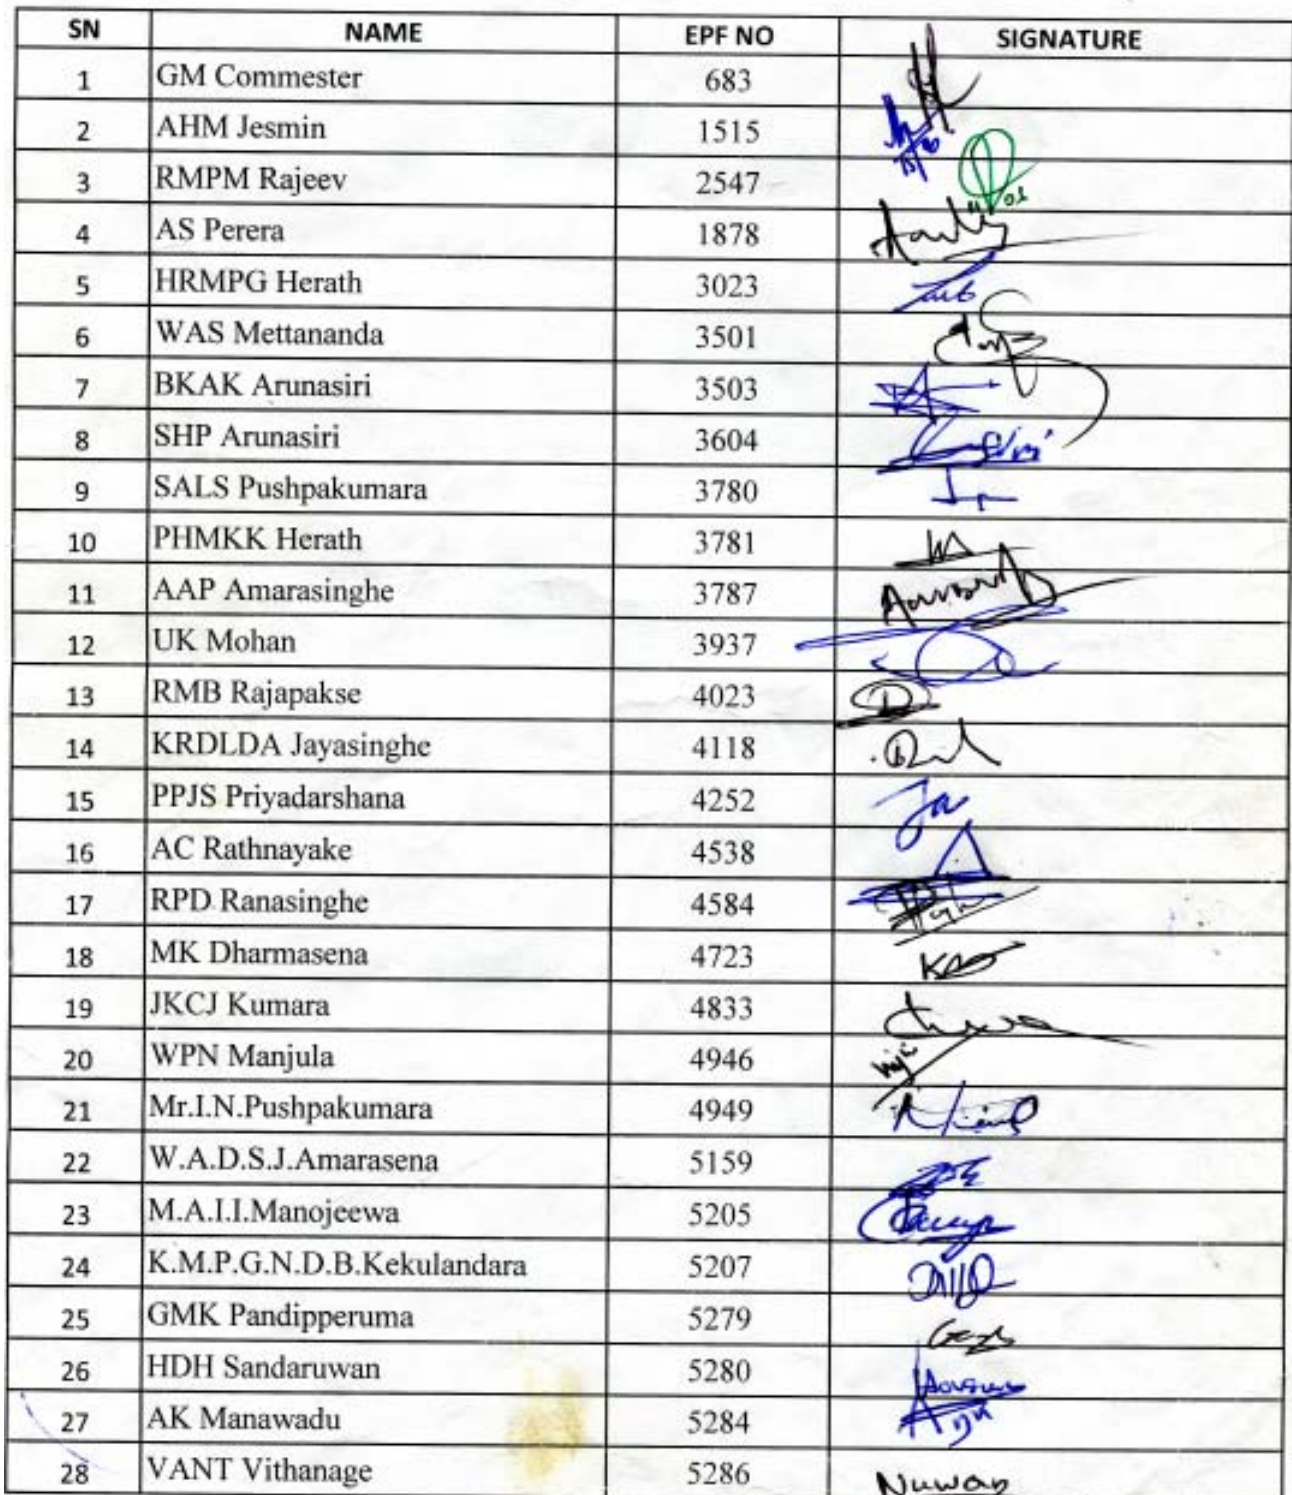 SN NAME EPF NO SIGNATURE
1 GM Commester 683
2 AHM Jesmin 1515
3 RMPM Rajeev 2547
4 AS Perera 1878
5 HRMPG Herath 3023
6 WAS Mettananda 3501
7 BKAK Arunasiri 3503
8 SHP Arunasiri 3604
9 SALS Pushpakumara 3780
10 PHMKK Herath 3781
11 AAP Amarasinghe 3787
12 UK Mohan 3937
13 RMB Rajapakse 4023
14 KRDLDA Jayasinghe 4118
15 PPJS Priyadarshana 4252
16 AC Rathnayake 4538
17 RPD Ranasinghe 4584
18 MK Dharmasena 4723
19 JKCJ Kumara 4833
20 WPN Manjula 4946
21 Mr.I.N.Pushpakumara 4949
22 W.A.D.S.J.Amarasena 5159
23 M.A.I.I.Manojeewa 5205
24 K.M.P.G.N.D.B.Kekulandara 5207
25 GMK Pandipperuma 5279
26 HDH Sandaruwan 5280
27 AK Manawadu 5284
28 VANT Vithanage 5286 Nuwan